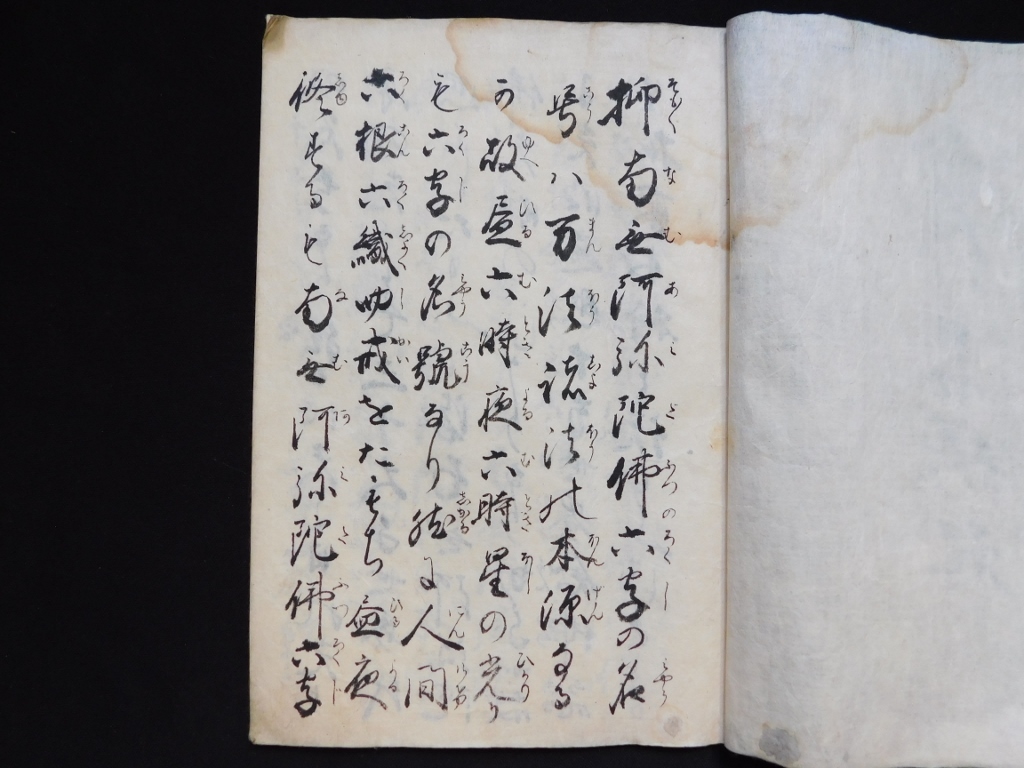 抑南無阿弥陀佛六字の名
号ハ万法諸法の本源なる
か故昼六時夜六時星の光り
も六字の名號なり然に人間
六根六識 戒をたもち昼夜
修するも南無阿弥陀佛六字